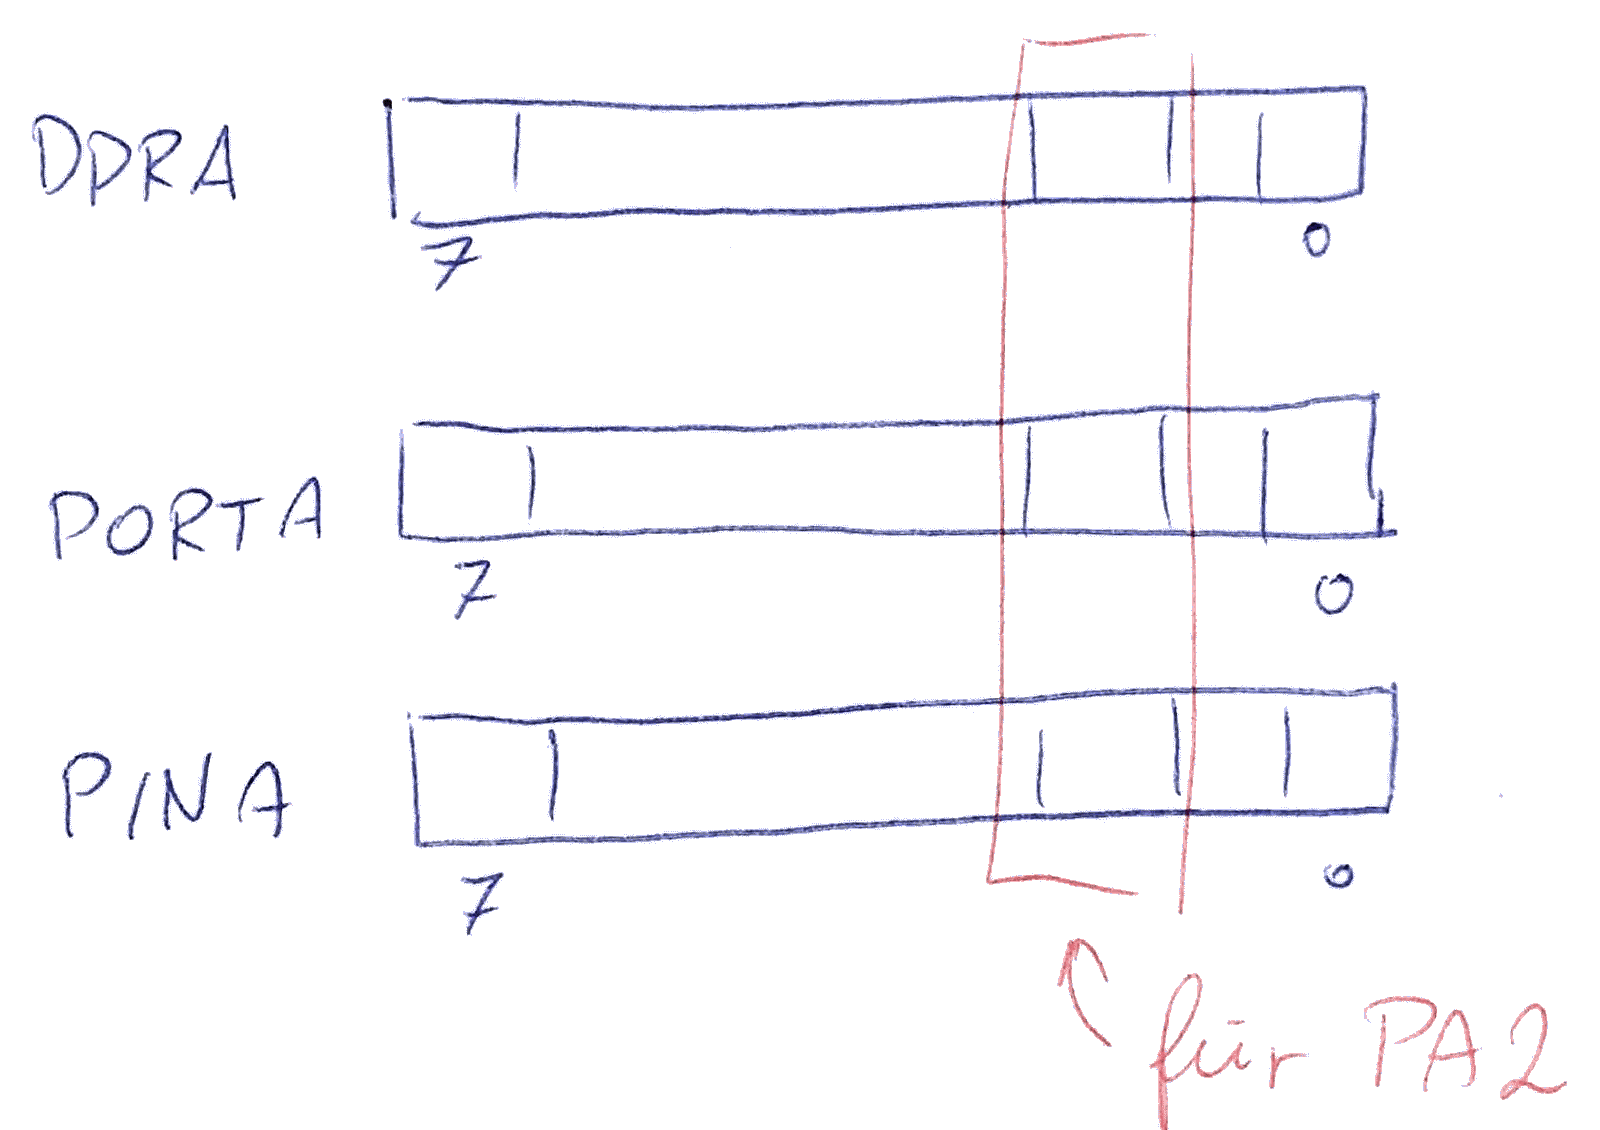 DDRA
7 0
PORTA
7 0
PINA
7 0
für PA2